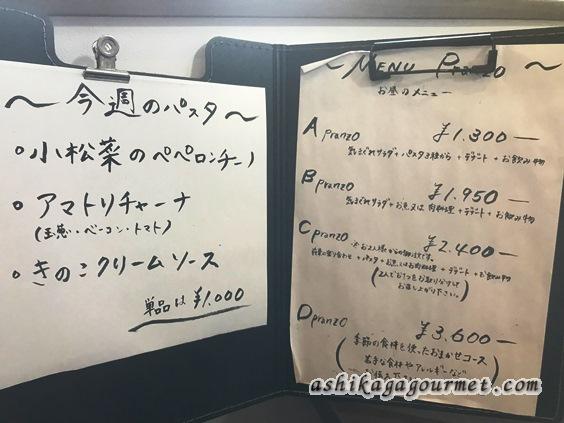 〜今週のパスタ〜
• 小松菜のペペロンチーノ
• アマトリチャーナ
(玉葱・ベーコン・トマト)
• きのこクリームソース
単品は¥1,000
〜 MENU Pranzo 〜
お昼のメニュー
A pranzo ¥1.300—
気まぐれサラダ+パスタ3種から+デザート+お飲み物
B pranzo ¥1.950—
気まぐれサラダ+お魚又は肉料理+デザート+お飲み物
C pranzo ¥2.400—
※お2人様からの御注文です。
前菜の盛り合わせ+パスタ+お魚又はお肉料理+デザート+お飲み物
(2人でお1つをお取り分けして
お召し上がり下さい。)
D pranzo ¥3.600—
(季節の食材を使ったおまかせコース
苦手な食材やアレルギーなど
ashikagagourmet.com